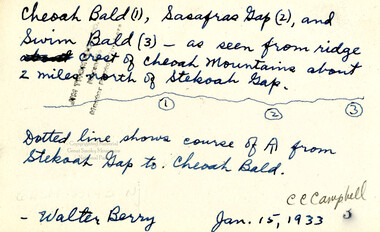 Cheoah Bald (1), Sasafras Gap (2), and
Swim Bald (3) — as seen from ridge
crest of Cheoah Mountains about
2 miles north of Stekoah Gap.
1 2 3
Dotted line shows course of AT from
Stekoah Gap to Cheoah Bald.
C C Campbell
- Walter Berry Jan. 15, 1933